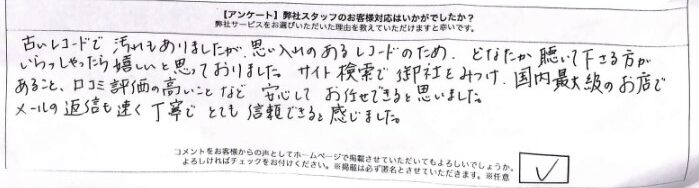 【アンケート】弊社スタッフのお客様対応はいかがでしたか?
弊社サービスをお選びいただいた理由を教えていただけますと幸いです。
古いレコードで 汚れもありましたが、思い入れのあるレコードのため、どなたか 聴いて下さる方が
いらっしゃったら 嬉しいと思っておりました。サイト検索で 御社をみつけ、国内最大級のお店で
あること、口コミ評価の高いことなど 安心して お任せできると思いました。
メールの返信も速く丁寧で とても 信頼できると感じました。
コメントをお客様からの声としてホームページで掲載させていただいてもよろしいでしょうか。
よろしければチェックをお付けください。※掲載は必ず匿名とさせていただきます。※任意